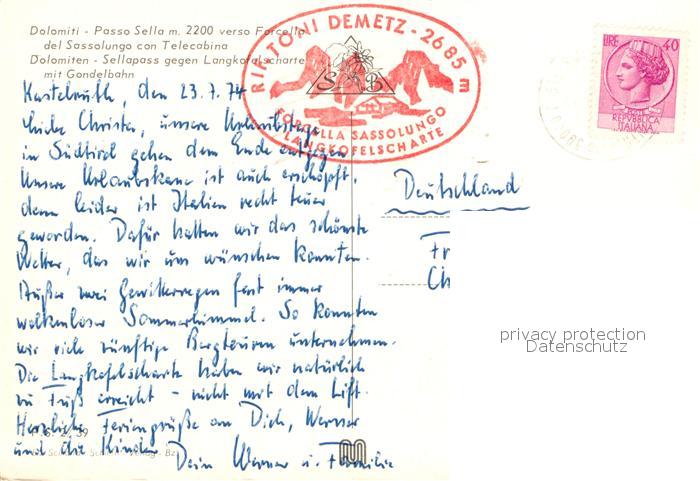 Dolomiti - Passo Sella m. 2200 verso Forcella
del Sassolungo con Telecabina
Dolomiten - Sellapass gegen Langkofelscharte
mit Gondelbahn
RIF. TONI DEMETZ - 2685 m
S B
FORCELLA SASSOLUNGO
LANGKOFELSCHARTE
LIRE 40
REPVBBLICA
ITALIANA
Kastelruth, den 23.7.74
Liebe Christa, unsere Urlaubstage
in Südtirol gehen dem Ende entgegen
Unsere Urlaubskasse ist auch erschöpft,
denn leider ist Italien recht teuer
geworden. Dafür hatten wir das schönste
Wetter, das wir uns wünschen konnten.
Außer zwei Gewitterregen fast immer
wolkenloser Sommerhimmel. So konnten
wir viele zünftige Bergtouren unternehmen.
Die Langkofelscharte haben wir natürlich
zu Fuß erreicht - nicht mit dem Lift.
Herzliche Feriengrüße an Dich, Werner
und die Kinder
Dein Werner u. Familie
Deutschland
Fr
Ch
privacy protection
Datenschutz